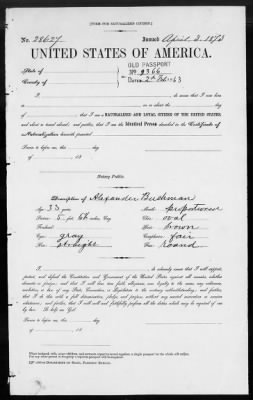 [FORM FOR NATURALIZED CITIZEN.]
No. 28627. Issued April 2. 1873
UNITED STATES OF AMERICA.
OLD PASSPORT
State of
Nº 9366
County of
DATED 2d Feb 63
I, do swear that I was born
in on or about the day
of that I am a NATURALIZED AND LOYAL CITIZEN OF THE UNITED STATES
and about to travel abroad; and further, that I am the Identical Person described in the Certificate of
Naturalization herewith presented
Sworn to before me, this day
of 18
Notary Public.
Description of Alexander Bushman
Age: 33 years. Mouth: proportioned
Stature: 5 feet 6½ inches, Eng. Chin: oval
Forehead: Hair: brown
Eyes: gray Complexion: fair
Nose: straight Face: round
I, do solemnly swear that I will support,
protect, and defend the Constitution and Government of the United States against all enemies, whether
domestic or foreign; and that I will bear true faith, allegiance, and loyalty to the same, any ordinance,
resolution, or law of any State, Convention, or Legislature to the contrary notwithstanding; and further,
that I do this with a full determination, pledge, and purpose, without any mental reservation or evasion
whatsoever; and further, that I will well and faithfully perform all the duties which may be required of me
by law. So help me God.
Sworn to before me, this day
of 18
When husband, wife, minor children, and servants expect to travel together, a single passport for the whole will suffice.
For any other person in the party, a separate passport will be required.